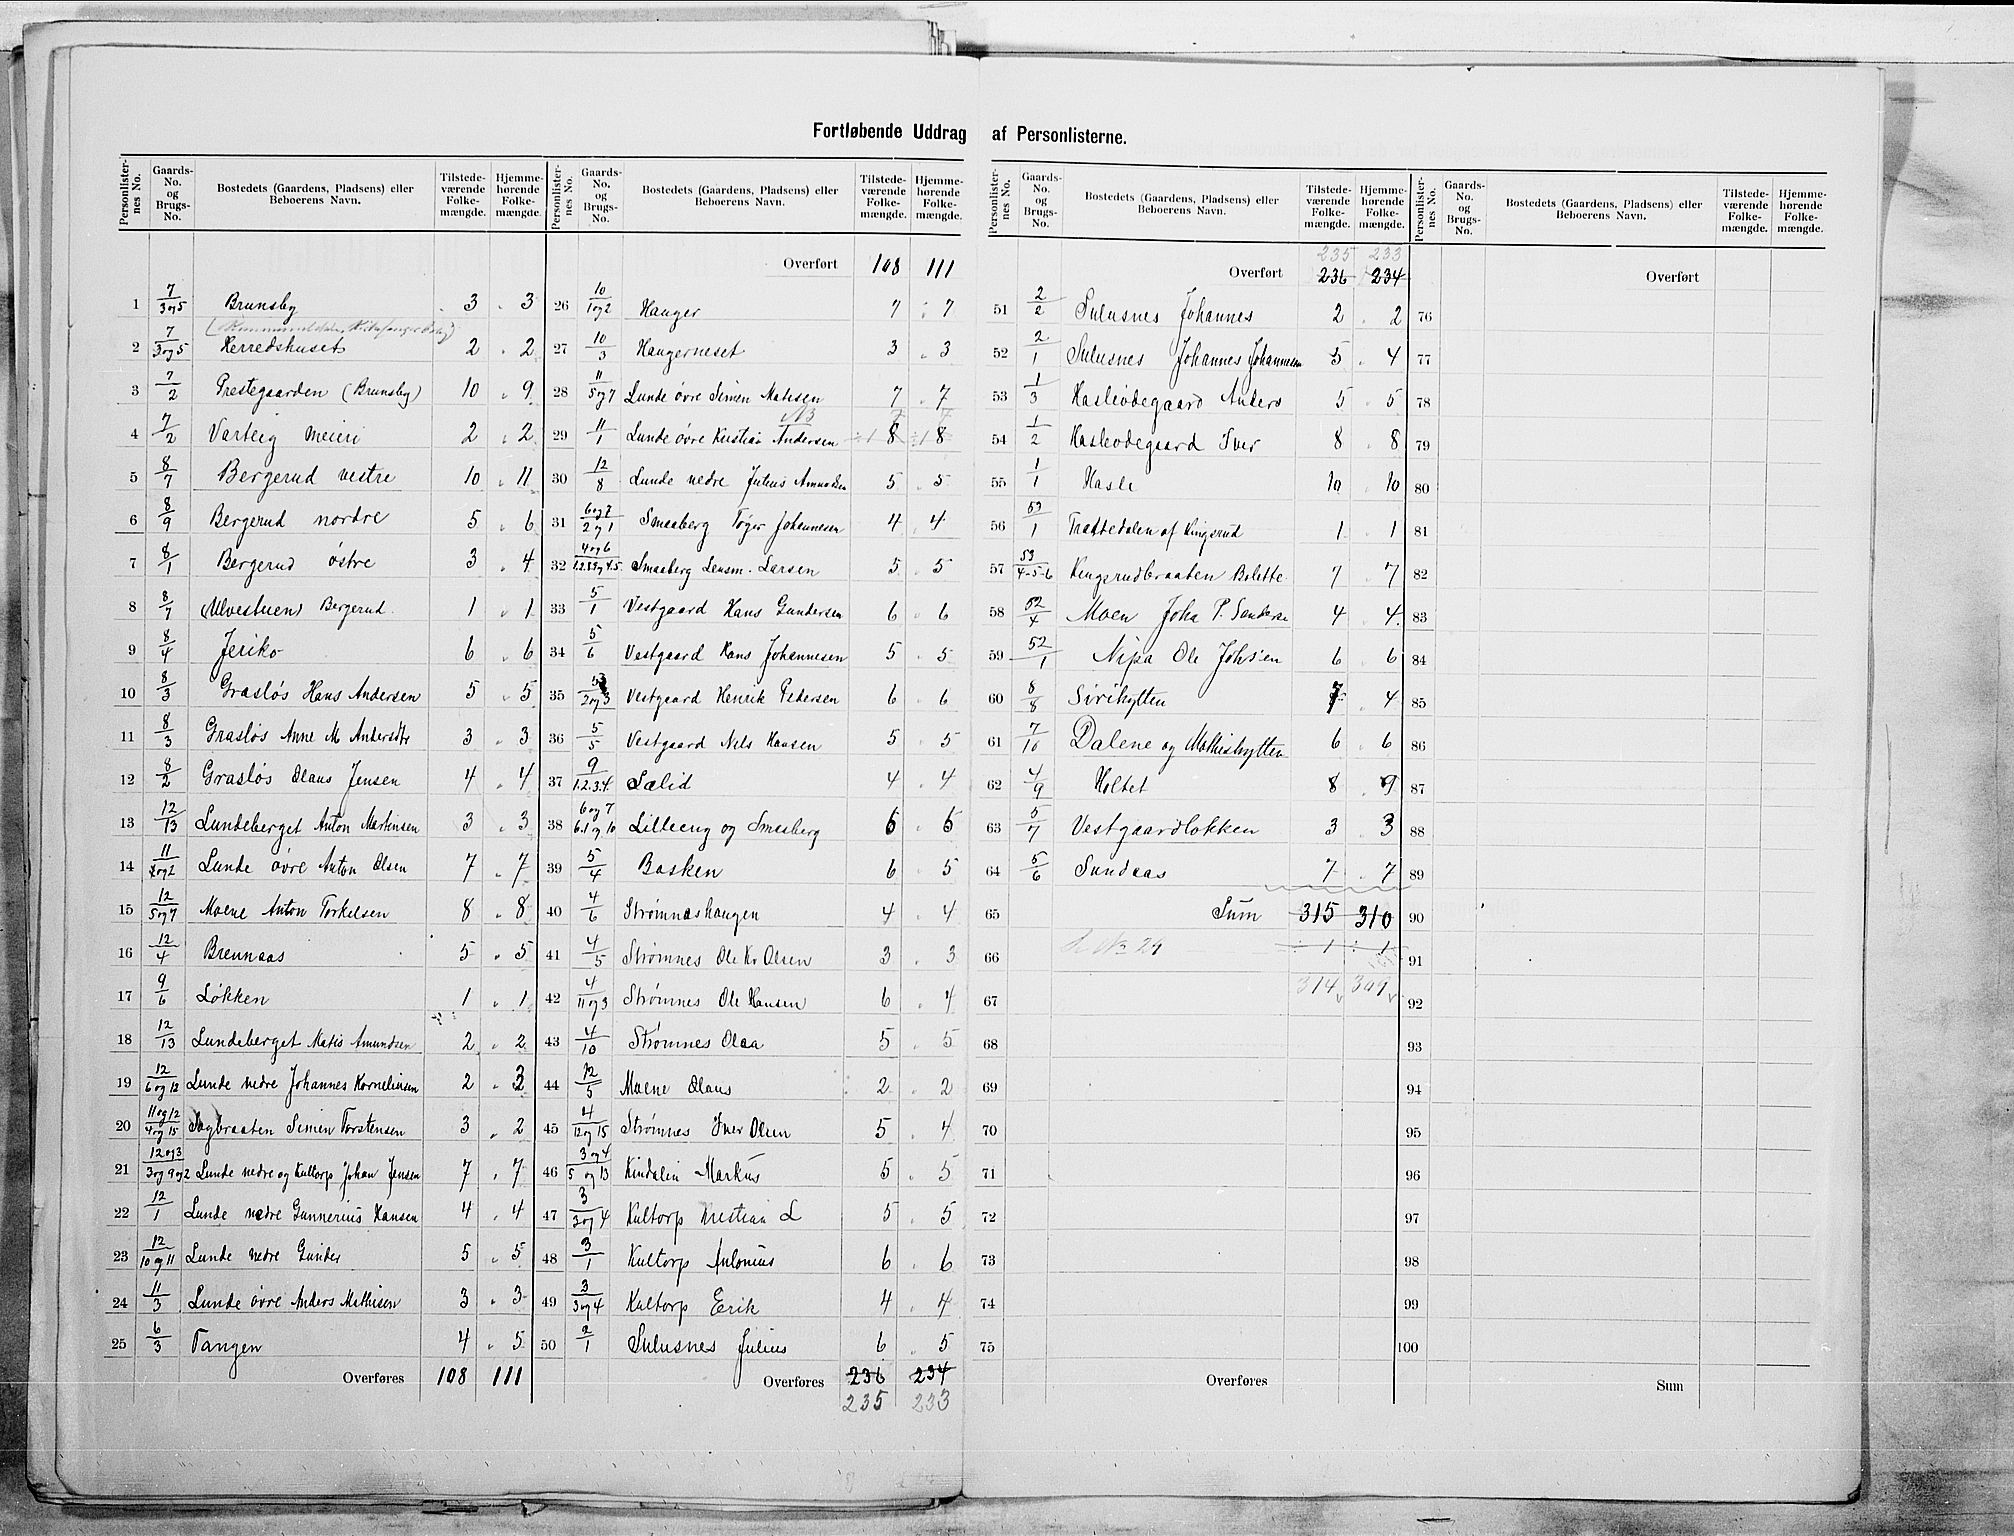 Fortløbende Uddrag af Personlisterne.
Personlister-nes No. Gaards-No. og Brugs-No. Bostedets (Gaardens, Pladsens) eller Beboerens Navn. Tilstede-værende Folke-mængde. Hjemme-hørende Folke-mængde.
1 7/3og5 Brunsby 3 3
2 7/3og5 Herredshuset 2 2
3 7/2 Prestegaarden (Brunsby) 10 9
4 7/2 Varteig Meieri 2 2
5 8/7 Bergerud vestre 10 11
6 8/9 Bergerud nordre 5 6
7 8/1 Bergerud østre 3 4
8 8/7 (Ulvestuen) Bergerud 1 1
9 8/4 Jeriko 6 6
10 8/3 Grasløs Hans Andersen 5 5
11 8/3 Grasløs Anne M Andersdtr 3 3
12 8/2 Grasløs Olaus Jensen 4 4
13 12/13 Lundeberget Anton Martinsen 3 3
14 11/2og2 Lunde øvre Anton Olsen 7 7
15 12/5og7 Moene Anton Torkelsen 8 8
16 12/4 Brennaas 5 5
17 9/6 Løkken 1 1
18 12/13 Lundeberget Matis Amundsen 2 2
19 12/6og12 Lunde nedre Johannes Kornelinsen 2 2
20 11og12/4og15 Sagbraaten Simen Torstensen 3 2
21 12og3/3og9og2 Lunde nedre og Kultorp Johan Jensen 7 7
22 12/1 Lunde nedre Gunnerius Hansen 4 4
23 12/10og11 Lunde nedre Gunder 5 5
24 11/3 Lunde øvre Anders Mathisen 3 3
25 6/3 Tangen 4 5
Overføres 108 111
Personlister-nes No. Gaards-No. og Brugs-No. Bostedets (Gaardens, Pladsens) eller Beboerens Navn. Tilstede-værende Folke-mængde. Hjemme-hørende Folke-mængde.
Overført 108 111
26 10/1og2 Hauger 7 7
27 10/3 Haugerneset 3 3
28 11/5og7 Lunde øvre Simen Matisen 7 7
N3 7 7
29 11/1 Lunde øvre Kristian Andersen ÷1 8 ÷1 8
30 12/8 Lunde nedre Julius Amundsen 5 5
31 6og7/2og1 Smaaberg Tøger Johannesen 4 4
32 4og6/1.2.3og4.5 Smaaberg Lensm. Larsen 5 5
33 5/1 Vestgaard Hans Gundersen 6 6
34 5/6 Vestgaard Hans Johannesen 5 5
35 5/2og3 Vestgaard Henrik Pedersen 6 6
36 5/5 Vestgaard Nils Hansen 5 5
37 9/1.2.3.4 Lælid 4 4
38 6og7/6.1og10 Lilleeng og Smaaberg 6 6
39 5/4 Basken 6 5
40 4/6 Strømneshaugen 4 4
41 4/5 Strømnes Ole Kr Olsen 3 3
42 4/11og3 Strømnes Ole Hansen 6 4
43 4/10 Strømnes Olea 5 5
44 12/5 Moene Olaus 2 2
45 4/12og15 Strømnes Iver Olsen 5 4
46 3og4/5og13 Kindalin Markus 5 5
47 3/3og4 Kultorp Kristian L 5 5
48 3/1 Kultorp Antonius 6 6
49 3/3og4 Kultorp Erik 4 4
50 2/1 Sulusnes Julius 6 5
Overføres 236 234
235 233
Personlister-nes No. Gaards-No. og Brugs-No. Bostedets (Gaardens, Pladsens) eller Beboerens Navn. Tilstede-værende Folke-mængde. Hjemme-hørende Folke-mængde.
235 233
Overført 236 234
51 2/2 Sulusnes Johannes 2 2
52 2/1 Sulusnes Johannes Johannesen 5 4
53 1/3 Hasleødegaard Anders 5 5
54 1/2 Hasleødegaard Iver 8 8
55 1/1 Hasle 10 10
56 53/1 Trættedalen af Kingsrud 1 1
57 53/4-5-6 Kingsrudbraaten Bolette 7 7
58 52/4 Moen Joha P. 4 4
59 52/1 Nipa Ole Johsen 6 6
60 8/8 Sirihytten 7 4
61 7/10 Dalene og Mathishytten 6 6
62 4/9 Holtet 8 9
63 5/7 Vestgaardløkken 3 3
64 5/6 Sundaas 7 7
65 Sum 315 310
66 L No 29 ÷ 1 ÷ 1
67 314 309
68
69
70
71
72
73
74
75
Overføres
Personlister-nes No. Gaards-No. og Brugs-No. Bostedets (Gaardens, Pladsens) eller Beboerens Navn. Tilstede-værende Folke-mængde. Hjemme-hørende Folke-mængde.
Overført
76
77
78
79
80
81
82
83
84
85
86
87
88
89
90
91
92
93
94
95
96
97
98
99
100
Sum